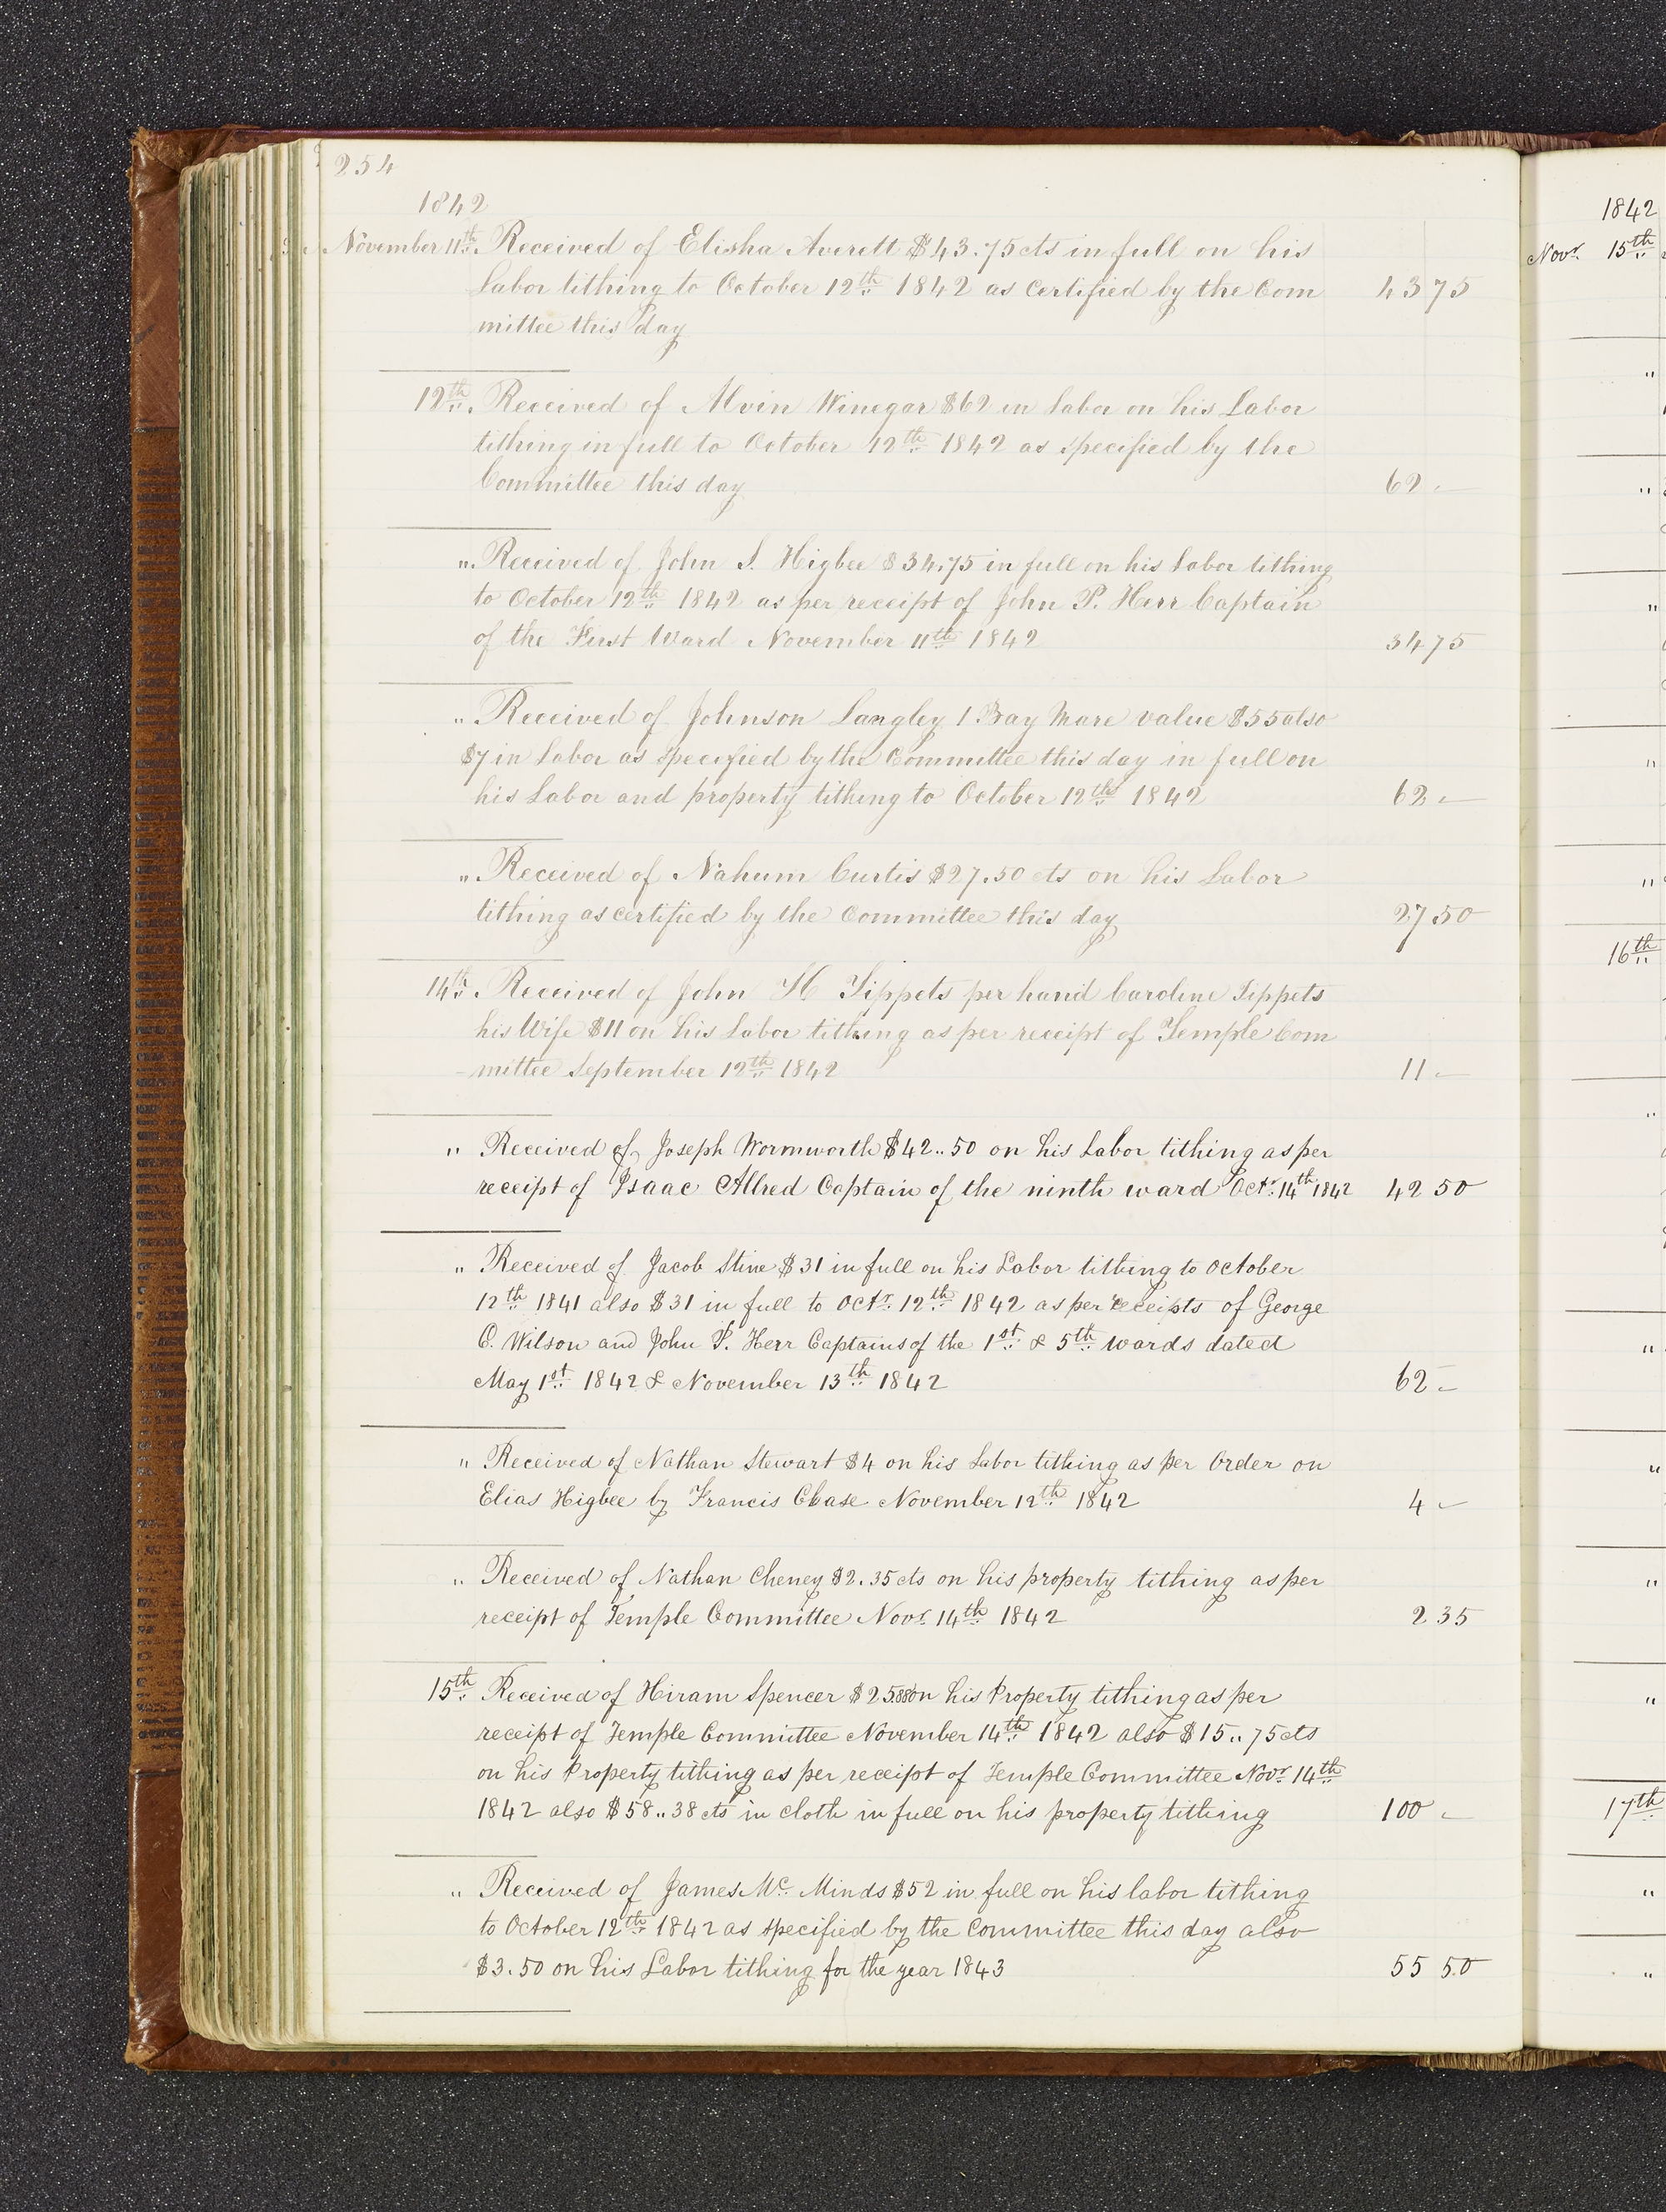 254
1842
November 11th. Received of Elisha Averett $43.75 cts in full on his
Labor tithing to October 12th 1842 as certified by the Com 43 75
mittee this day
12th. Received of Alvin Winegar $62 in Labor on his Labor
tithing in full to October 12th 1842 as specified by the
Committee this day 62 -
" Received of John S. Higbee $34.75 in full on his Labor tithing
to October 12th 1842 as per receipt of John P. Herr Captain
of the First Ward November 11th 1842 34 75
" Received of Johnson Langley 1 Bay Mare value $55 also
$7 in Labor as specified by the Committee this day in full on
his Labor and property tithing to October 12th 1842 62 -
" Received of Nahum Curtis $27.50 cts on his Labor
tithing as certified by the Committee this day 27 50
14th. Received of John H Tippets per hand Caroline Tippets
his Wife $11 on his Labor tithing as per receipt of Temple Com
-mittee September 12th 1842 11 -
" Received of Joseph Wormworth $42..50 on his Labor tithing as per
receipt of Isaac Allred Captain of the ninth ward Octr. 14th 1842 42 50
" Received of Jacob Stine $31 in full on his Labor tithing to October
12th 1841 also $31 in full to Octr. 12th 1842 as per receipts of George
C. Wilson and John P. Herr Captains of the 1st & 5th wards dated
May 1st 1842 & November 13th 1842 62 -
" Received of Nathan Stewart $4 on his Labor tithing as per Order on
Elias Higbee by Francis Chase November 12th 1842 4 -
" Received of Nathan Cheney $2.35 cts on his property tithing as per
receipt of Temple Committee Novr. 14th 1842 2 35
15th Received of Hiram Spencer $25.88 on his Property tithing as per
receipt of Temple Committee November 14th 1842 also $15..75 cts
on his Property tithing as per receipt of Temple Committee Novr. 14th
1842 also $58..38 cts in cloth in full on his property tithing 100 -
" Received of James Mc. Minds $52 in full on his labor tithing
to October 12th 1842 as specified by the Committee this day also
$3.50 on his Labor tithing for the year 1843 55 50
1842
Novr. 15th
"
"
"
"
"
16th
"
"
"
"
"
17th
"
"